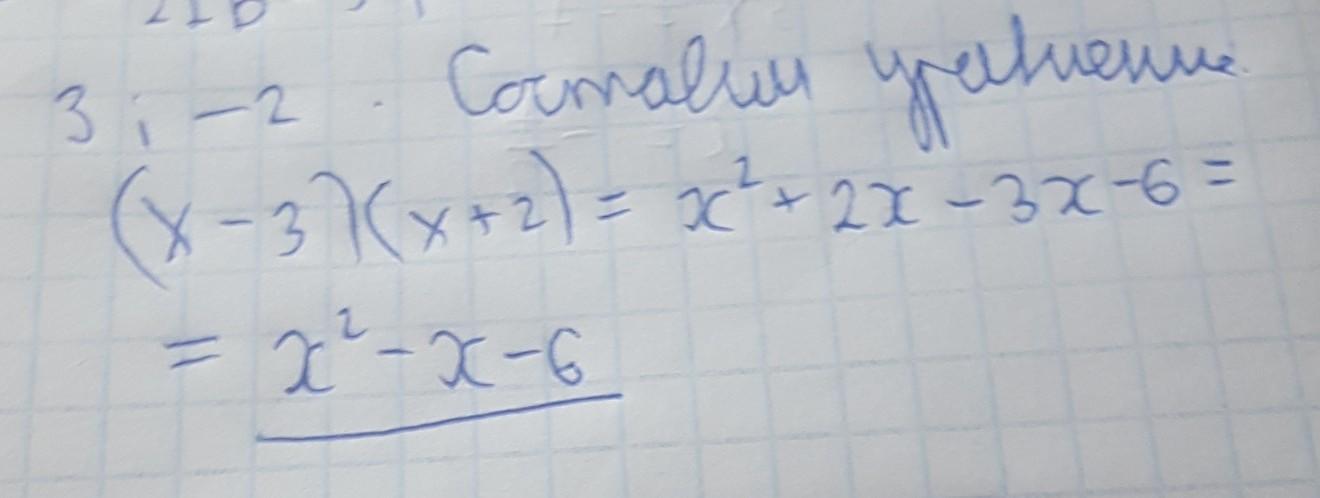 3 ; -2 . Составим уравнение.
(x-3)(x+2) = x² + 2x - 3x - 6 =
= x² - x - 6